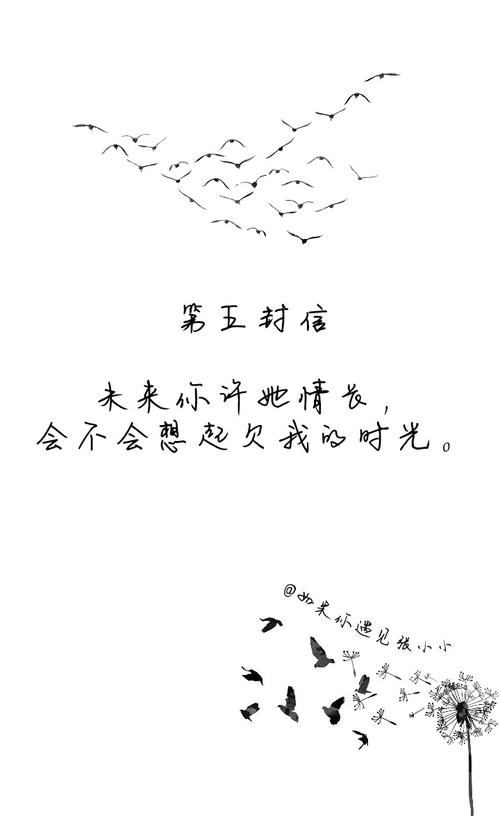 第五封信
未来你许她情长,
会不会想起欠我的时光。
@如果你遇见张小小